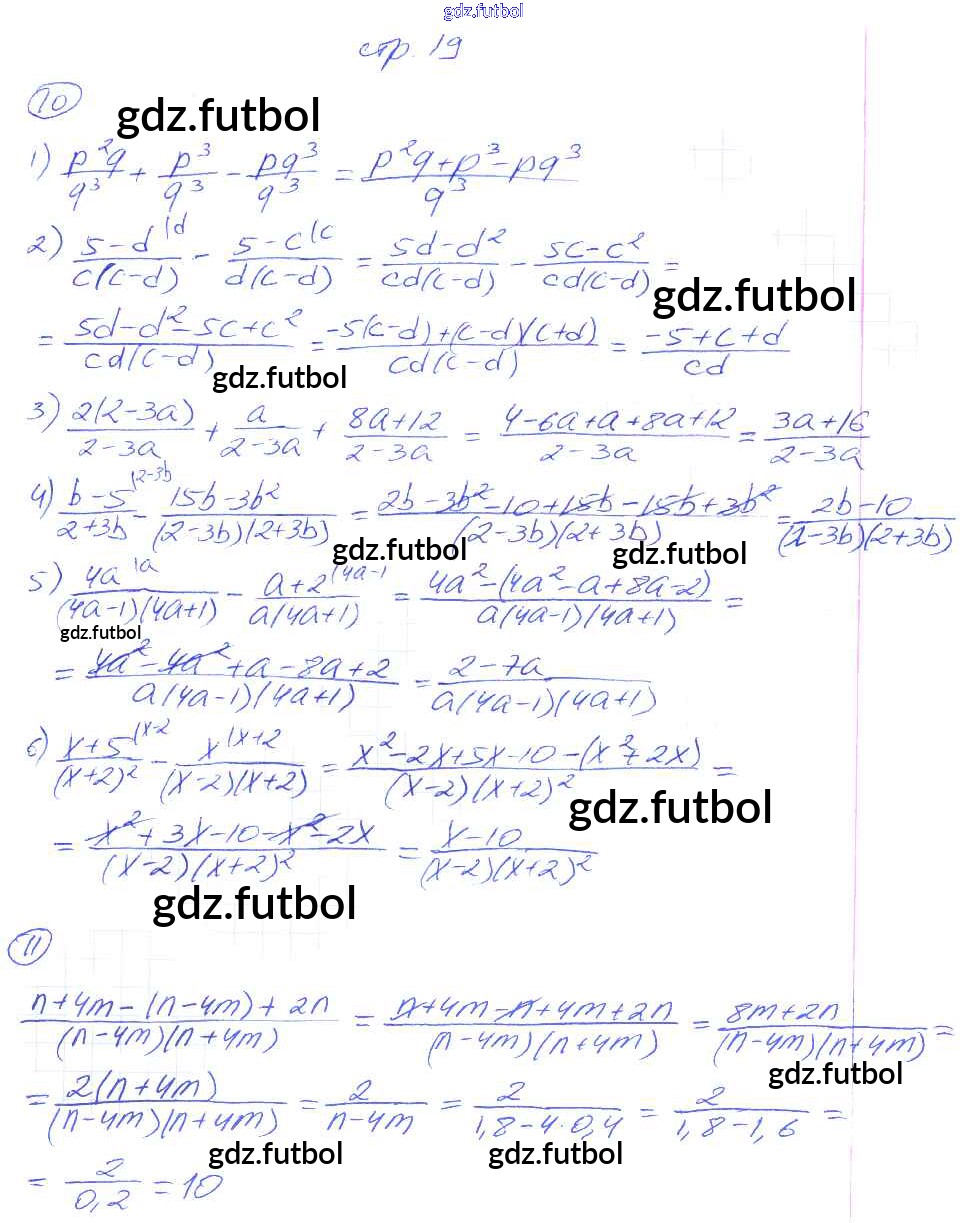 gdz.futbol
стр. 19
10
gdz.futbol
1) p²q/q³ + p³/q³ - pq³/q³ = (p²q+p³-pq³)/q³
2) (5-d)/(c(c-d)) |d - (5-c)/(d(c-d)) |c = (5d-d²)/(cd(c-d)) - (5c-c²)/(cd(c-d)) =
gdz.futbol
= (5d-d²-5c+c²)/(cd(c-d)) = (-5(c-d)+(c-d)(c+d))/(cd(c-d)) = (-5+c+d)/(cd)
gdz.futbol
3) 2(2-3a)/(2-3a) + a/(2-3a) + (8a+12)/(2-3a) = (4-6a+a+8a+12)/(2-3a) = (3a+16)/(2-3a)
4) (b-5)/(2+3b) |2-3b - (15b-3b²)/((2-3b)(2+3b)) = (2b-3b²-10+15b-15b+3b²)/((2-3b)(2+3b)) = (2b-10)/((2-3b)(2+3b))
gdz.futbol gdz.futbol
5) 4a/((4a-1)(4a+1)) |a - (a+2)/(a(4a+1)) |4a-1 = (4a²-(4a²-a+8a-2))/(a(4a-1)(4a+1)) =
gdz.futbol
= (4a²-4a²+a-8a+2)/(a(4a-1)(4a+1)) = (2-7a)/(a(4a-1)(4a+1))
6) (x+5)/(x+2)² |x-2 - x/((x-2)(x+2)) |x+2 = (x²-2x+5x-10-(x²+2x))/((x-2)(x+2)²) =
gdz.futbol
= (x²+3x-10-x²-2x)/((x-2)(x+2)²) = (x-10)/((x-2)(x+2)²)
gdz.futbol
11
(n+4m-(n-4m)+2n)/((n-4m)(n+4m)) = (n+4m-n+4m+2n)/((n-4m)(n+4m)) = (8m+2n)/((n-4m)(n+4m)) =
gdz.futbol
= 2(n+4m)/((n-4m)(n+4m)) = 2/(n-4m) = 2/(1,8-4·0,4) = 2/(1,8-1,6) =
gdz.futbol gdz.futbol
= 2/0,2 = 10